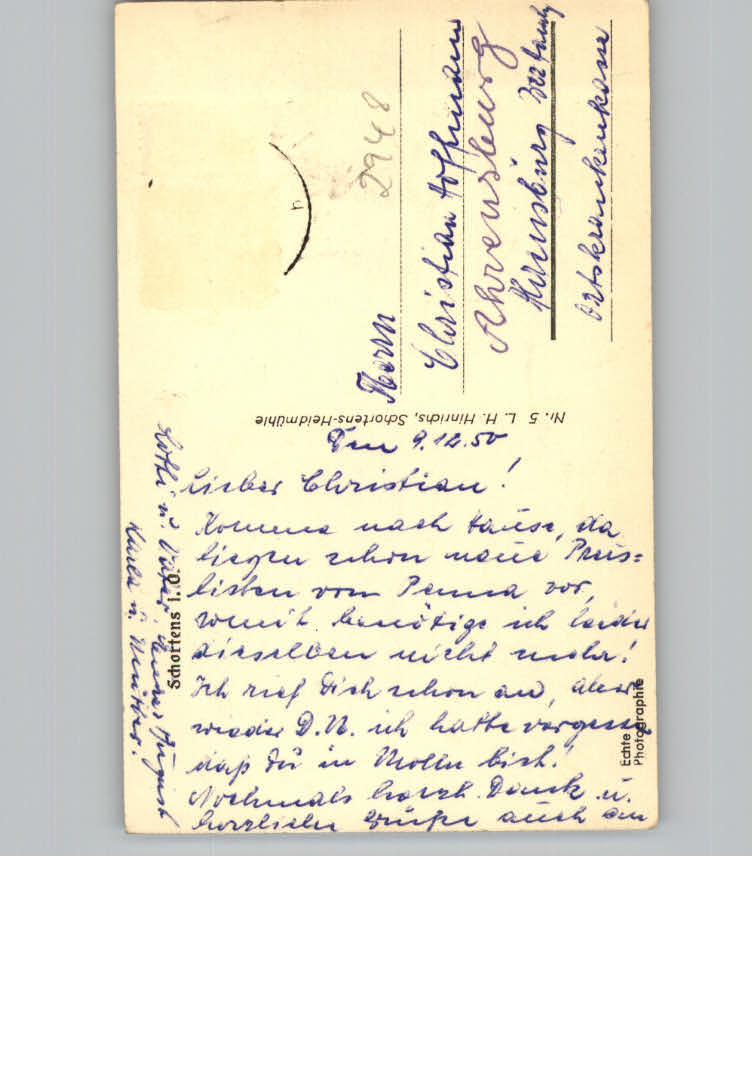 Herrn
Christian Hoffmann
Ahrensburg
Ortskrankenkasse
2948
Nr. 5 L. H. Hinrichs, Schortens-Heidmühle
Den 9.12.50
Lieber Christian!
Komme nach Hause, da
liegen schon neue Preis=
listen vom Penna vor,
somit benötige ich leider
dieselben nicht mehr!
Ich rief Dich schon an, aber
wieder D.N. ich hatte vergessen
daß Du in Mölln bist.
Nochmals herzl. Dank u.
herzliche Grüße auch an
u. Vater, August
Karla u. Mutter.
Schortens i. O.
Echte
Photographie